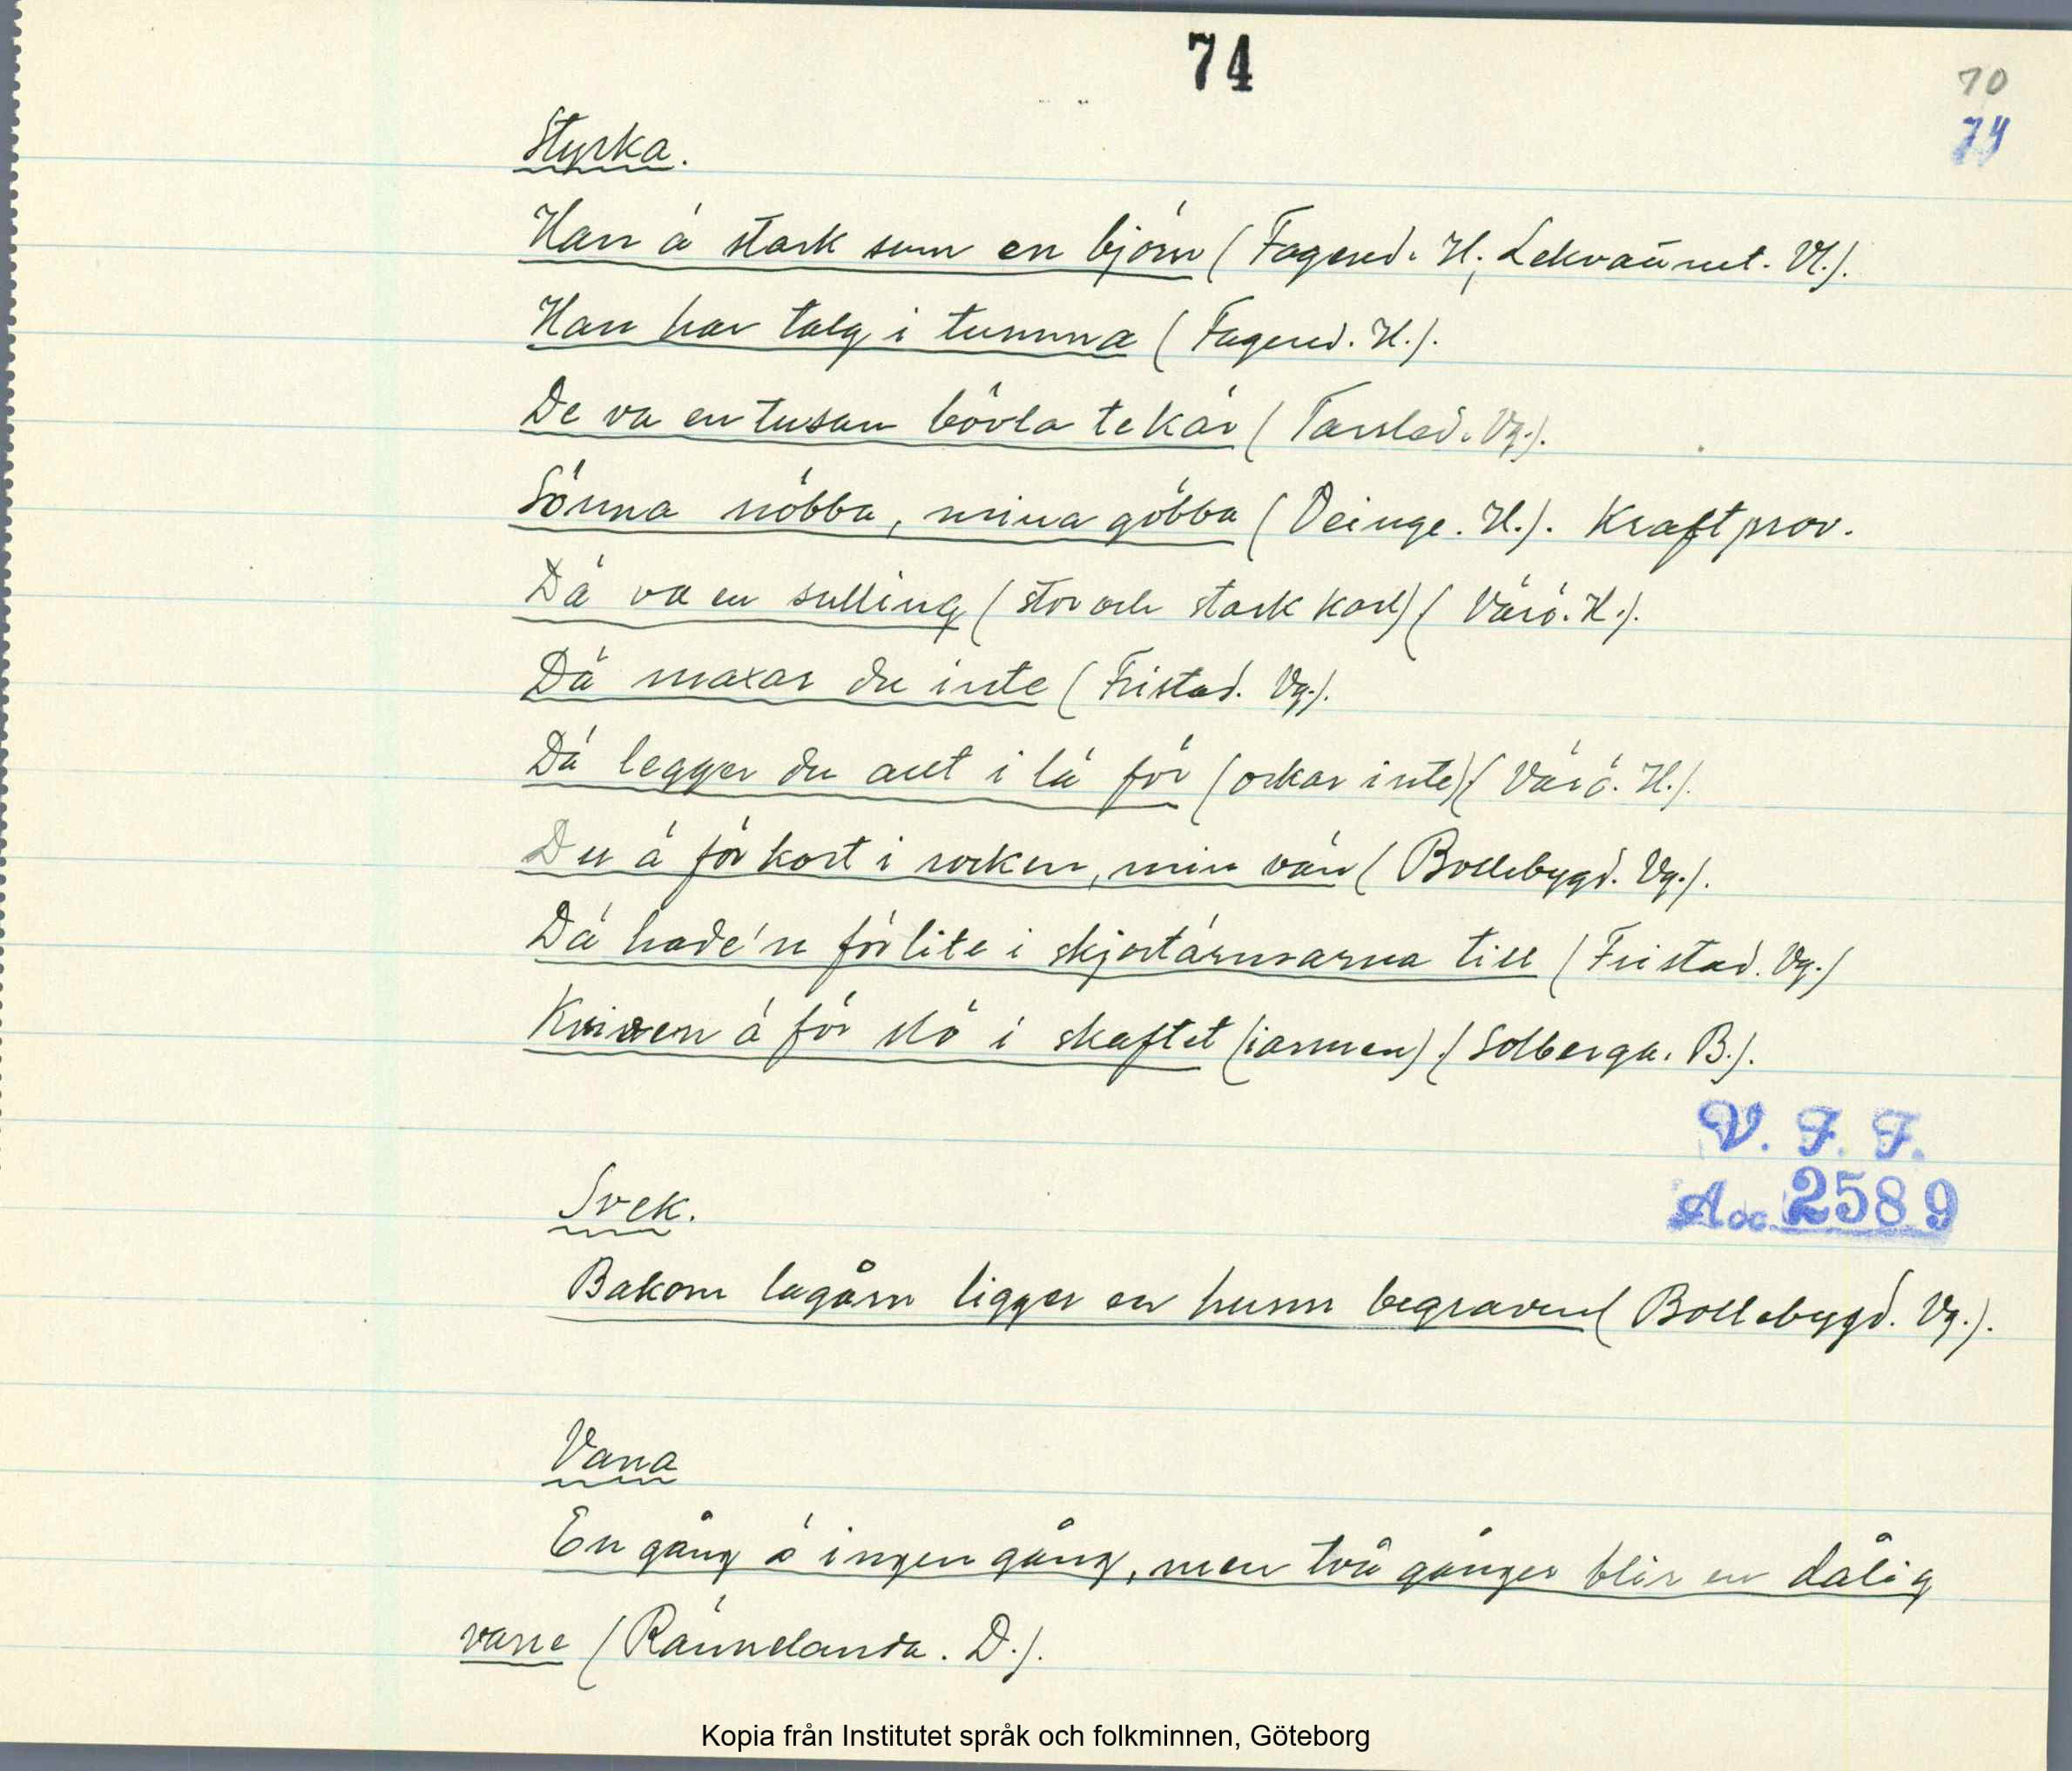 74
70
74
Styrka.
Han ä stark sum en björn (Fagered. H; Lekvattnet. Vl.).
Han har talg i tummna (Fagered. H.).
De va en tusan bövla te kär (Tarsled. Vg.).
Sönna nöbba, mina göbba (Veinge. H.). Kraftprov.
Dä va en sulling (stor och stark karl) (Värö. H.).
Dä maxar du inte (Fristad. Vg.).
Dä legger du allt i lä för (orkar inte) (Värö. H.).
Du ä för kort i rocken, min vän (Bollebygd. Vg.).
Dä hade'n för lite i skjortärmarna till (Fristad. Vg.)
Kniven ä för slö i skaftet (i armen). (Solberga. B.).
V. F. F.
Acc. 2589
Svek.
Bakom lagårn ligger en hunn begraven (Bollebygd. Vg.).
Vana
En gång ä ingen gång, men två gånger blir en dålig
vane (Rännelanda. D.).
Kopia från Institutet språk och folkminnen, Göteborg